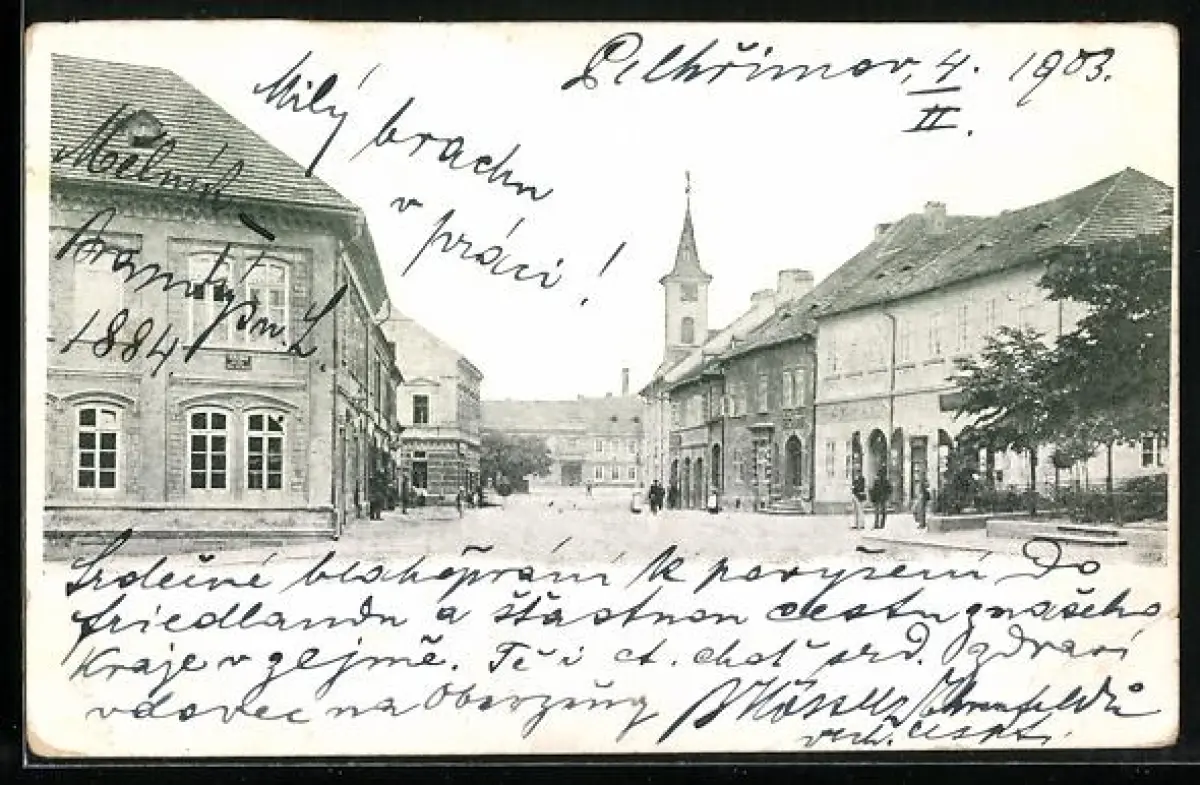 Pelhřimov, 4. II. 1903.
Milý brachu
v práci!
Mělník
Brandýs n. L
1884
Srdečné blahopřání k povýšení do
Friedlandu a šťastnou cestu z našeho
kraje v
Tě i ct. choť srd. pozdraví
vdovec na